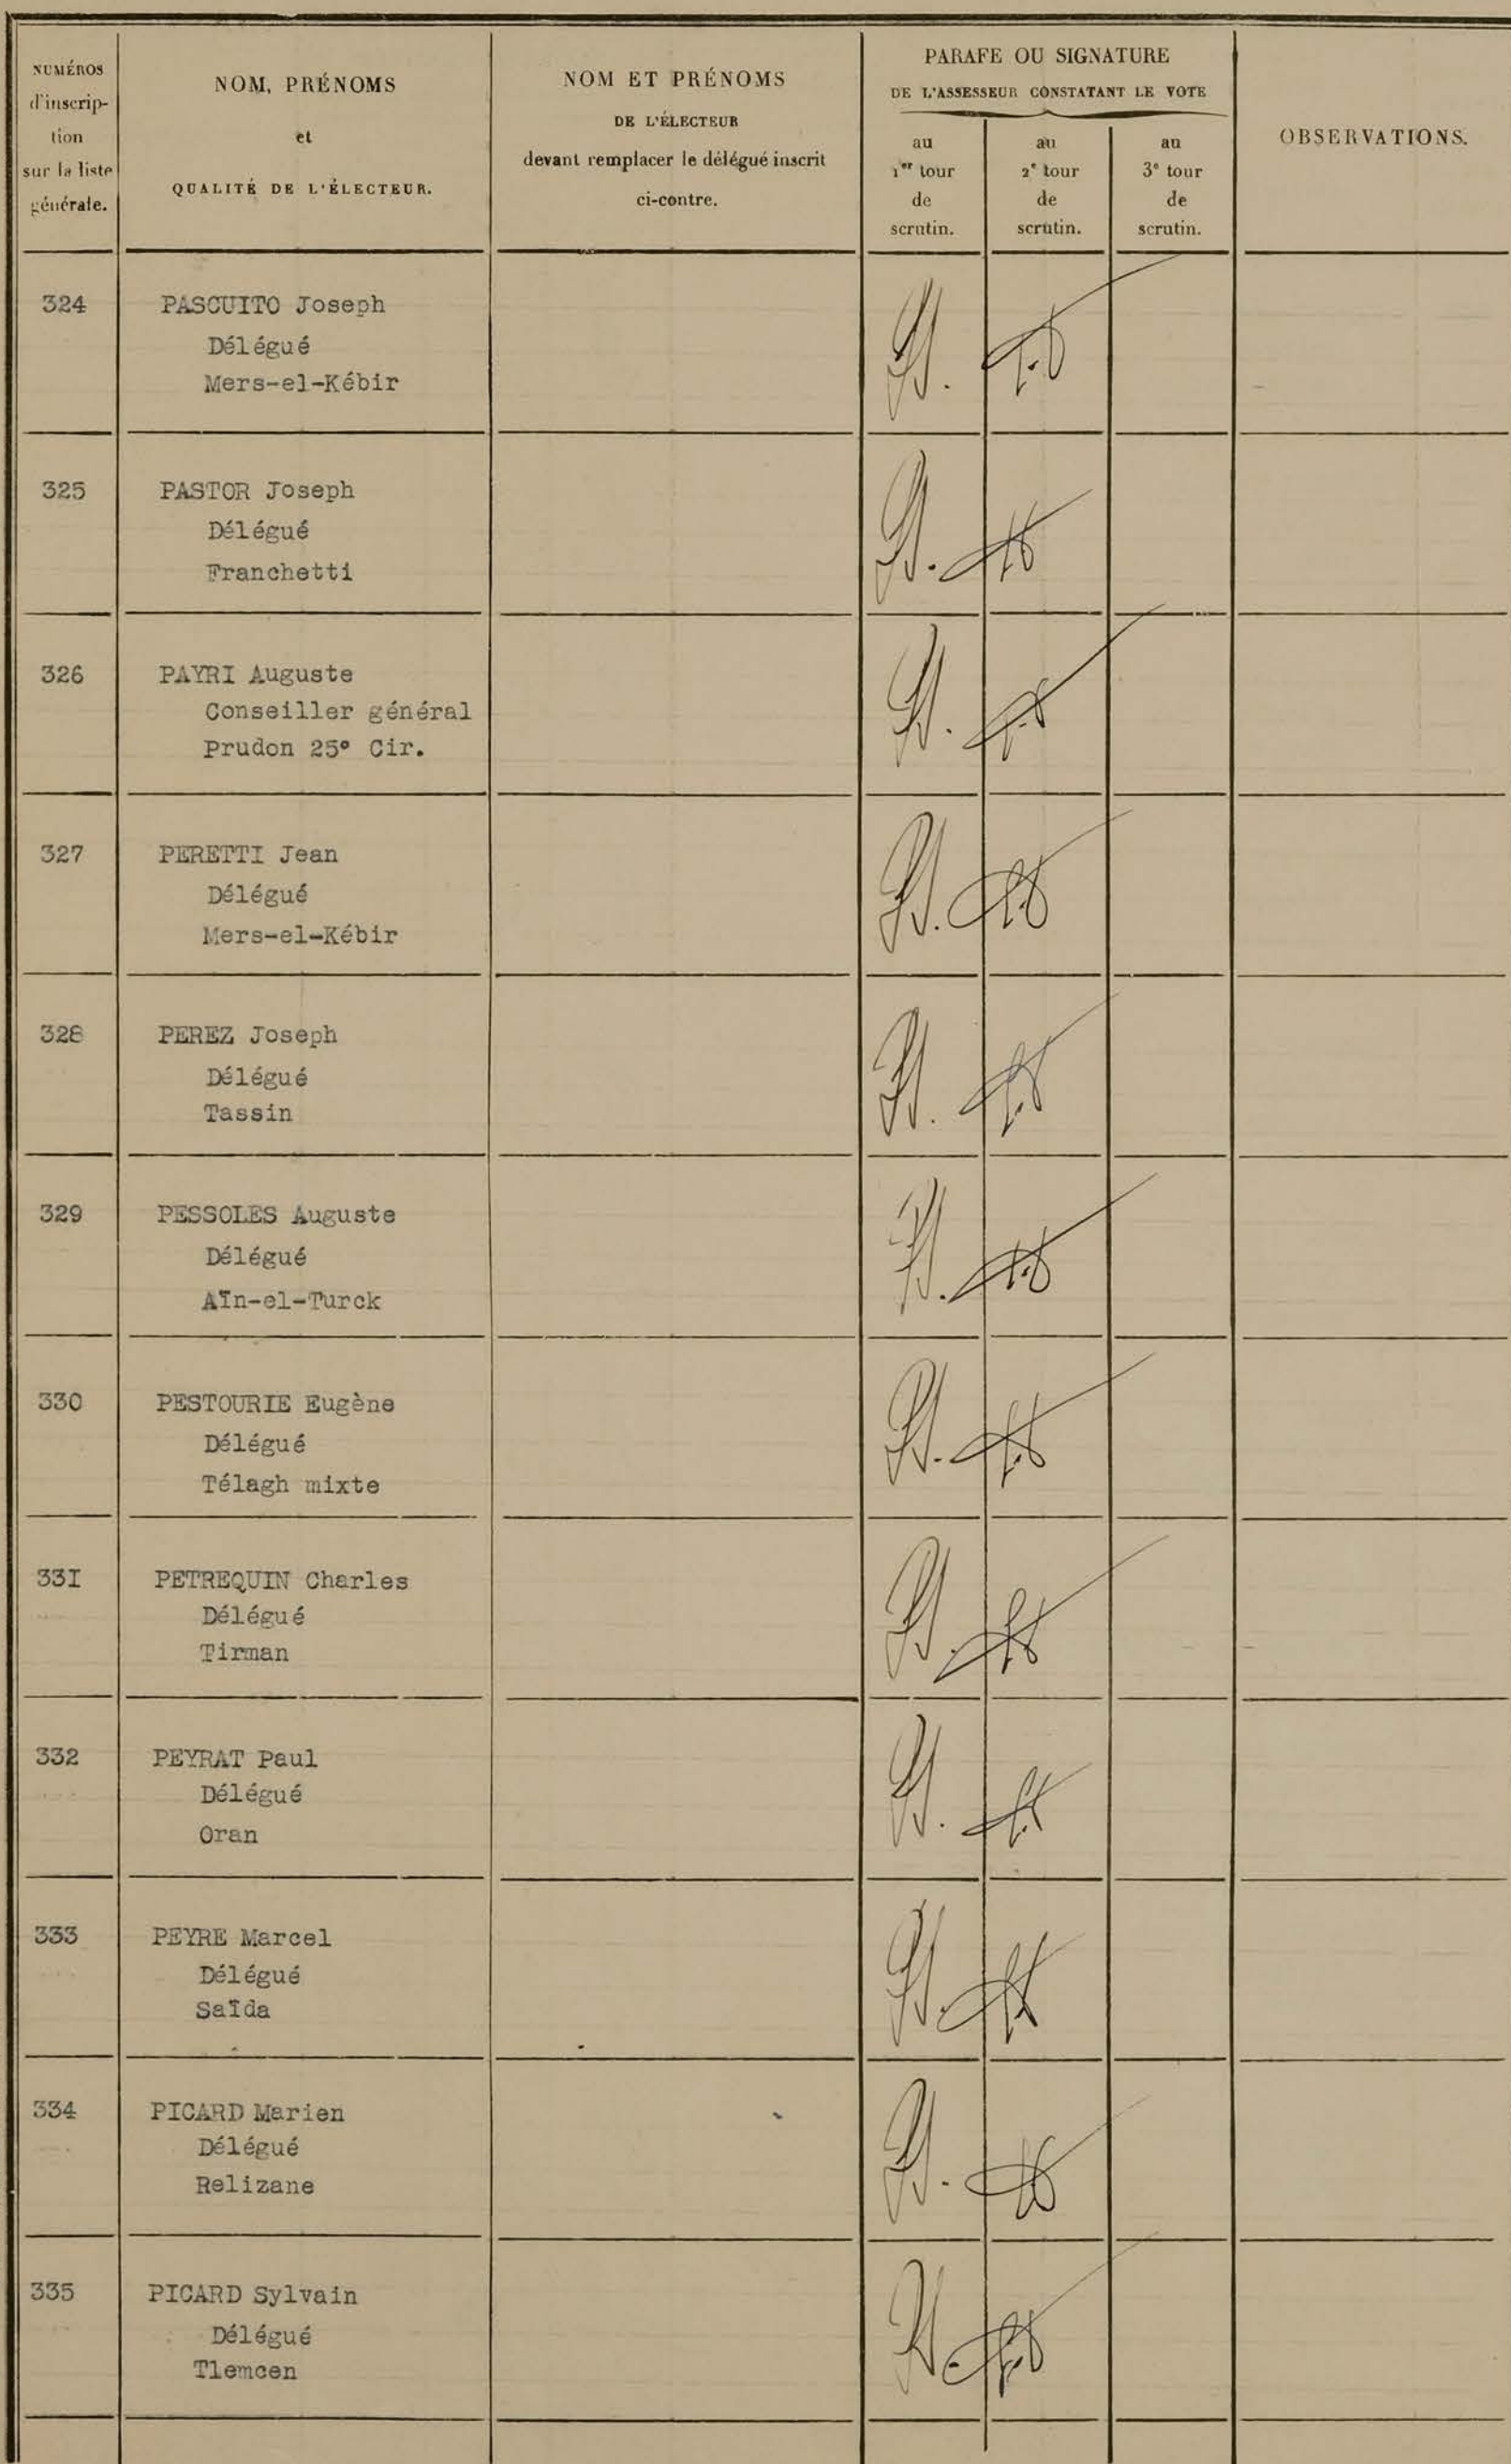 NUMÉROS
d'inscrip-
tion
sur la liste
générale.
NOM, PRÉNOMS
et
QUALITÉ DE L'ÉLECTEUR.
NOM ET PRÉNOMS
DE L'ÉLECTEUR
devant remplacer le délégué inscrit
ci-contre.
PARAFE OU SIGNATURE
DE L'ASSESSEUR CONSTATANT LE VOTE
au
1er tour
de
scrutin.
au
2e tour
de
scrutin.
au
3e tour
de
scrutin.
OBSERVATIONS.
324 PASCUITO Joseph
Délégué
Mers-el-Kébir
325 PASTOR Joseph
Délégué
Franchetti
326 PAYRI Auguste
Conseiller général
Prudon 25° Cir.
327 PERETTI Jean
Délégué
Mers-el-Kébir
328 PEREZ Joseph
Délégué
Tassin
329 PESSOLES Auguste
Délégué
Aïn-el-Turck
330 PESTOURIE Eugène
Délégué
Télagh mixte
33I PETREQUIN Charles
Délégué
Tirman
332 PEYRAT Paul
Délégué
Oran
333 PEYRE Marcel
Délégué
Saïda
334 PICARD Marien
Délégué
Relizane
335 PICARD Sylvain
Délégué
Tlemcen